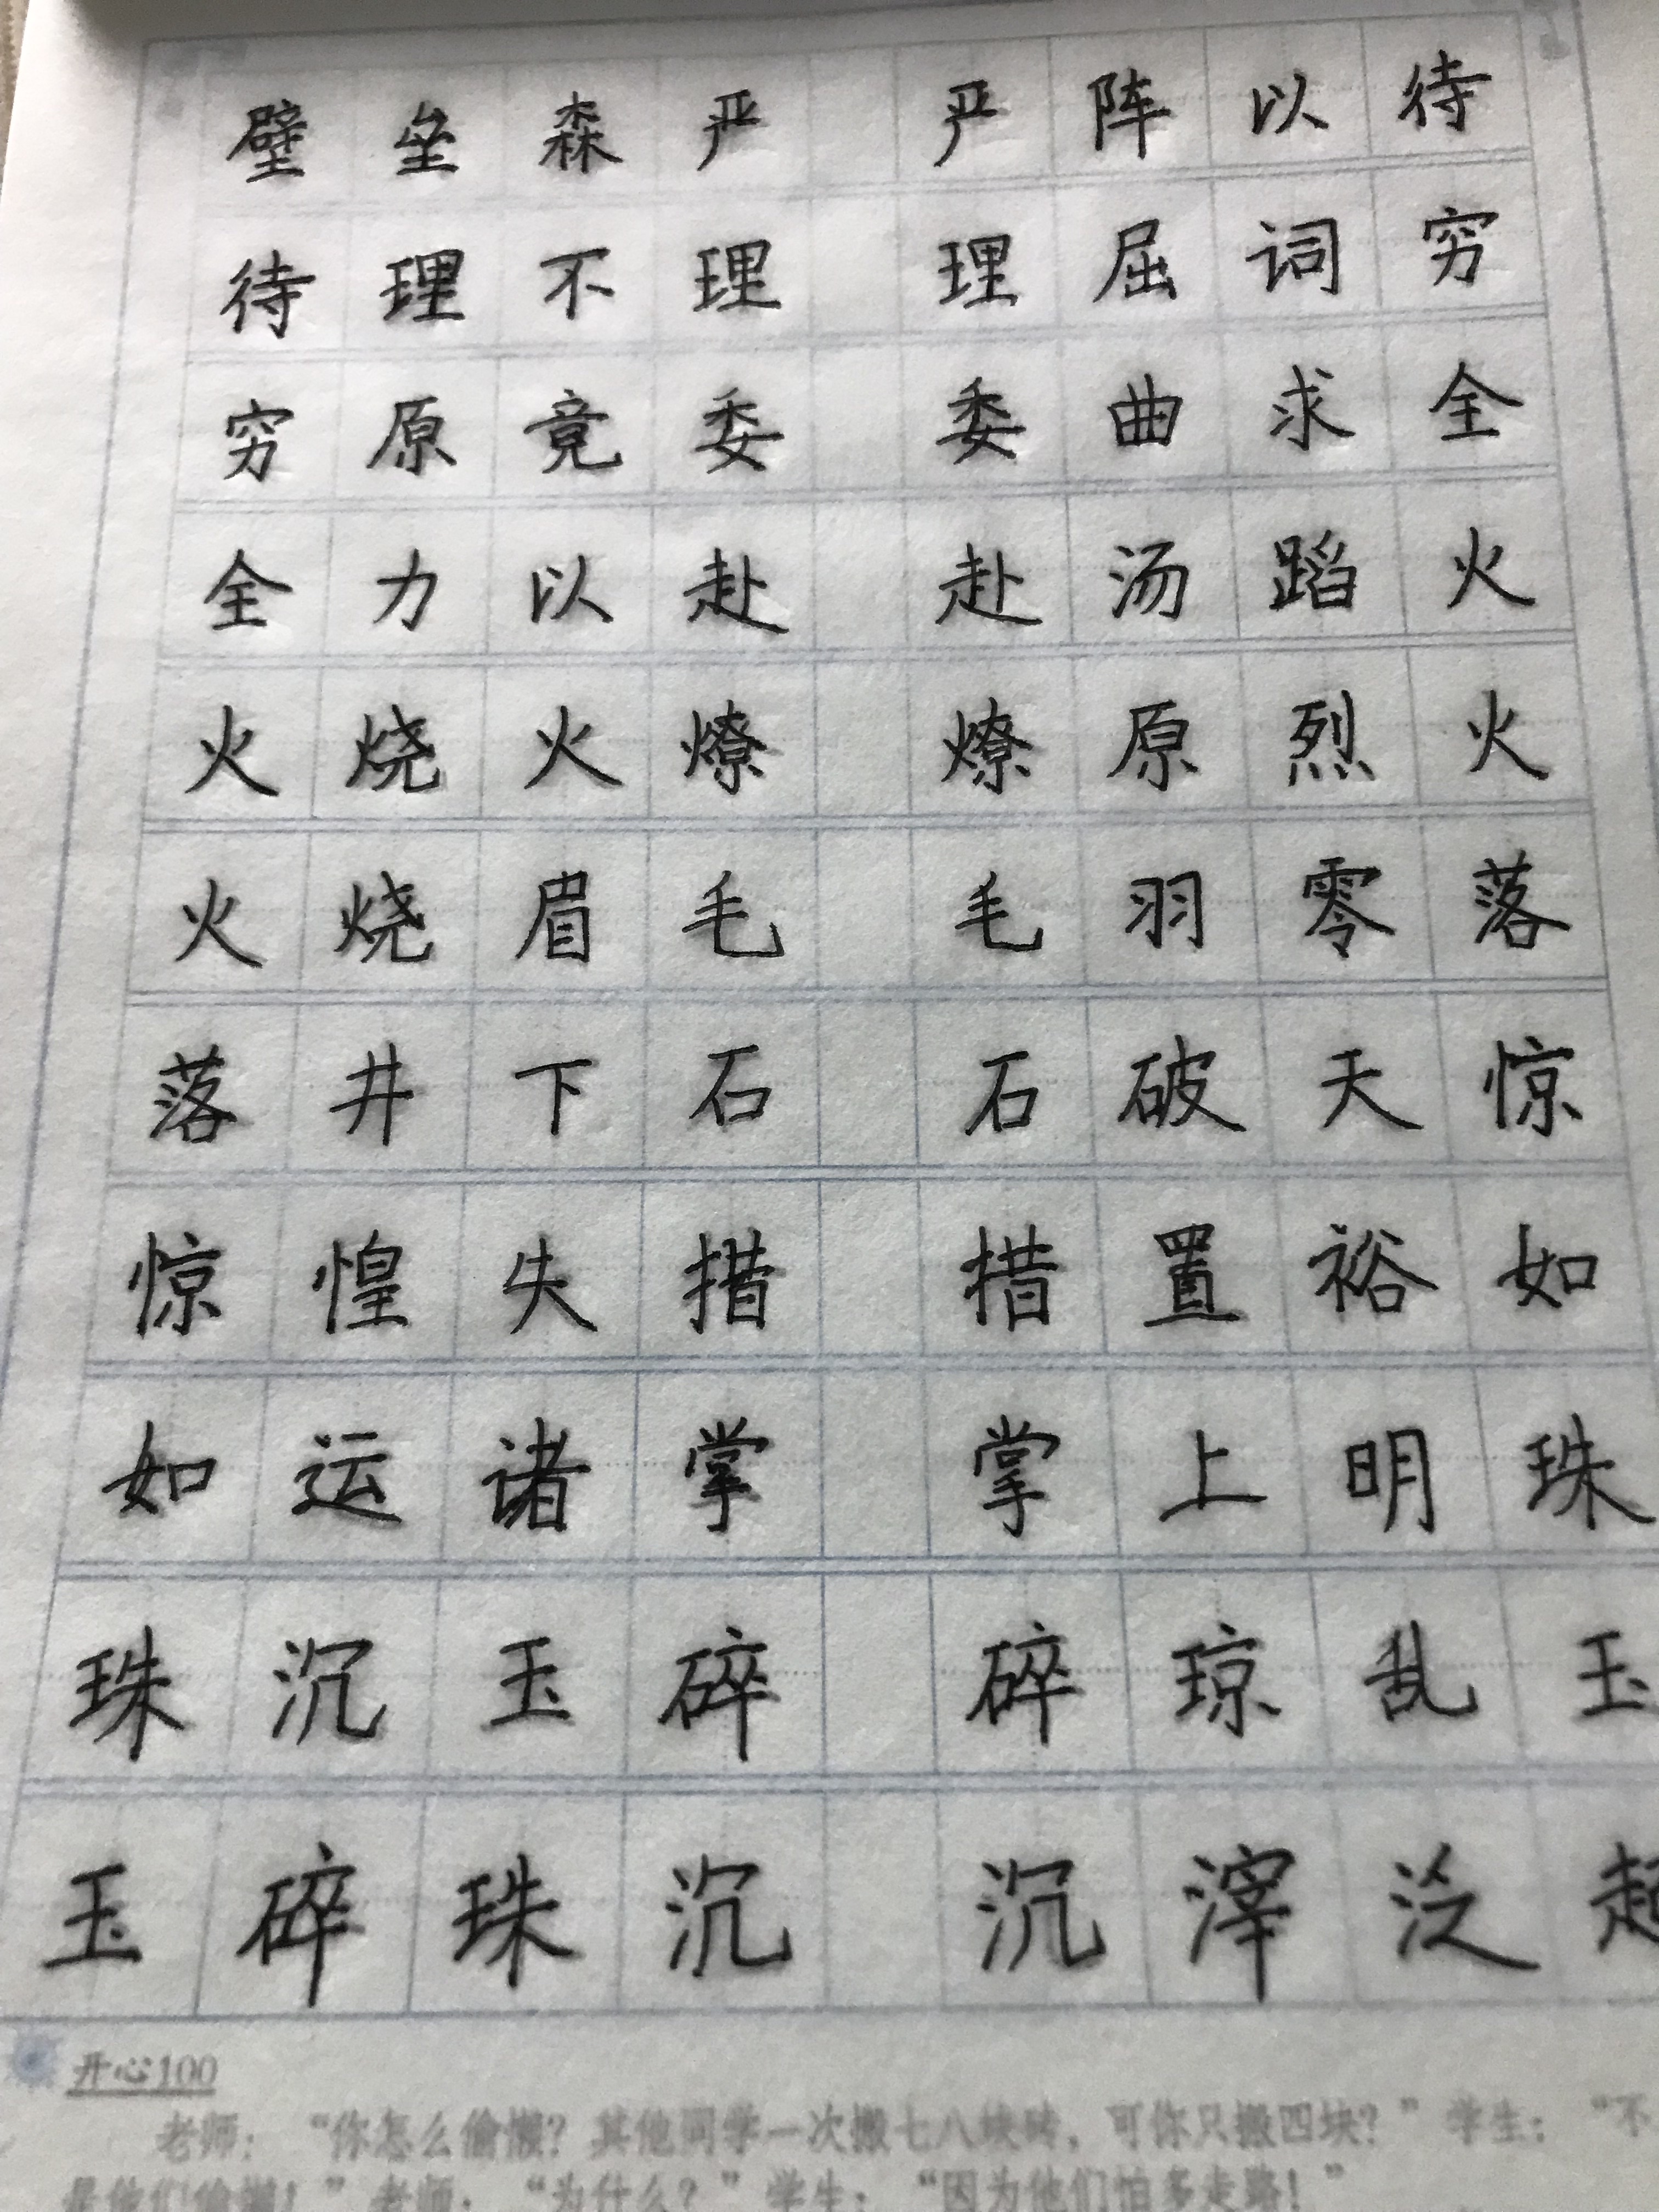 壁垒森严 严阵以待
待理不理 理屈词穷
穷原竟委 委曲求全
全力以赴 赴汤蹈火
火烧火燎 燎原烈火
火烧眉毛 毛羽零落
落井下石 石破天惊
惊惶失措 措置裕如
如运诸掌 掌上明珠
珠沉玉碎 碎琼乱玉
玉碎珠沉 沉滓泛起
开心100
老师：“你怎么偷懒？其他同学一次搬七八块砖，可你只搬四块？”学生：“不
是他们偷懒！”老师：“为什么？”学生：“因为他们怕多走路！”